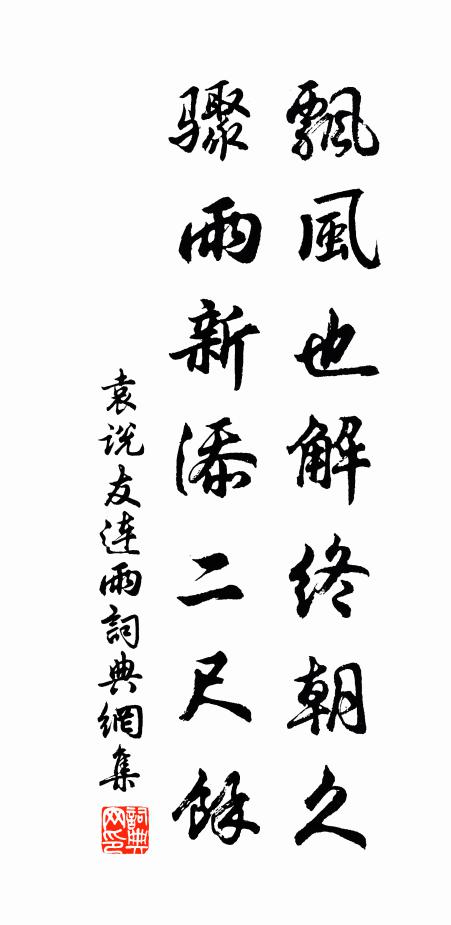 飄風也解終朝久
驟雨新添二尺餘
袁说友连雨詞典網集
詞典网印